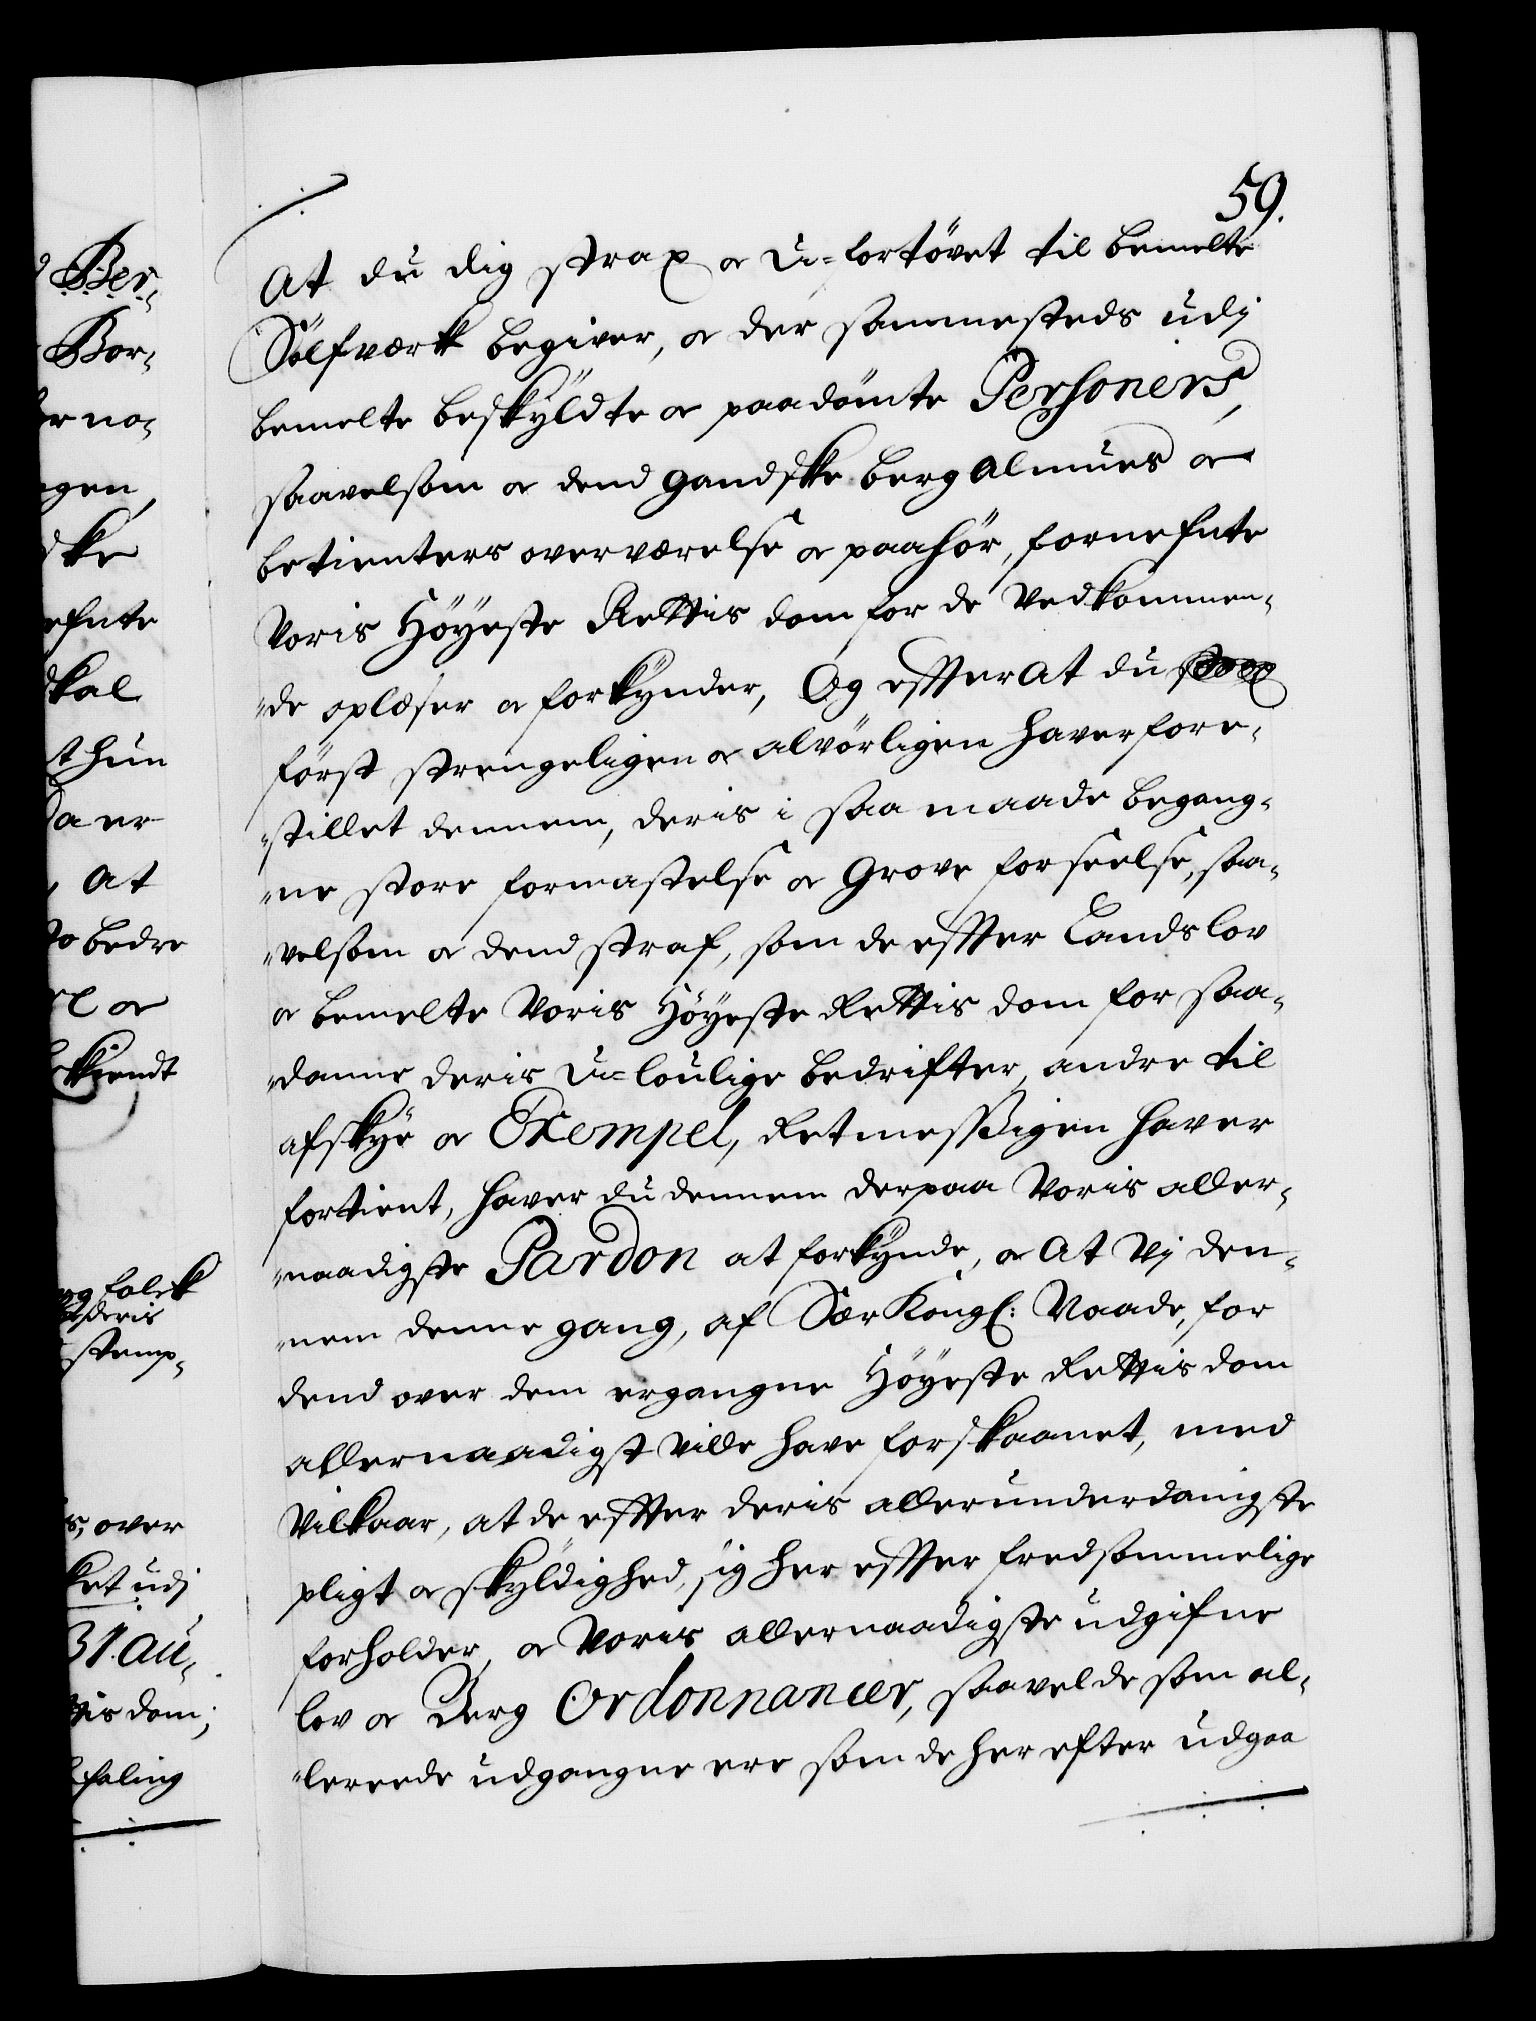 59.
At du dig strax og U-fortövet til bemelte
Sölfværk begiver, og der sammesteds udj
bemelte beskÿldte og paadömte Personers,
saavelsom og dend gandske berg almues og
betienters overværelse og paahör, fornefnte
Voris Höÿeste Rettis dom for de Vedkommen-
de oplæser og forkÿnder, Og effter at du
först strengeligen og alvörligen haver fore-
stillet dennem, deris i saa maade begang-
ne store formastelse og Grove forseelse, saa-
velsom og dend straf, som de effter Landslov
og bemelte Voris Höÿeste Rettis dom for saa-
danne deris U-loulige bedrifter, andre til
afskÿe og Exempel, Retmessigen haver
fortient, haver du dennem derpaa Voris aller-
naadigste Pardon at forkÿnde, og At Vj den-
nem denne gang, af Sær Kongl: Naade, for
dend over dem ergangne Höÿeste Rettis dom
allernaadigst ville have forskaanet, med
Vilkaar, at de effter deris allerunderdanigste
pligt og skÿldighed, sig her effter fredsommelige
forholder, og Voris allernaadigste udgifne
lov og Berg Ordonnancer, saavel de som al-
lereede udgangne ere som de her efter udgaa
Ber-
Bor-
er no-
gen,
dske
efnte
skal
at hun
Da er
, At
bedre
og
kiendt
folck
deris
stemp-
over
ket udj
31. Au-
tis dom;
faling